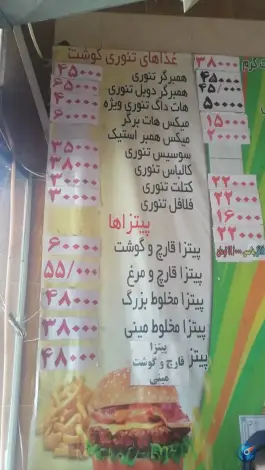 غذاهای تنوری گوشت
همبرگر تنوری ۴۵۰۰۰
همبرگر دوبل تنوری ۶۵۰۰۰
هات داگ تنوری ویژه ۴۰۰۰۰
میکس هات برگر ۶۰۰۰۰
میکس همبر استیک
سوسیس تنوری ۳۵۰۰۰
کالباس تنوری ۳۸۰۰۰
کتلت تنوری ۳۰۰۰۰
فلافل تنوری ۳۰۰۰۰
پیتزاها
پیتزا قارچ و گوشت ۶۰۰۰۰
پیتزا قارچ و مرغ ۵۵/۰۰۰
پیتزا مخلوط بزرگ ۴۸۰۰۰
پیتزا مخلوط مینی ۳۸۰۰۰
پیتزا قارچ و گوشت مینی ۴۸۰۰۰
۳۸۰۰۰
۴۵۰۰۰
۴۵۰۰۰
۵۰۰۰۰
۱۵۰۰۰
۲۰۰۰۰
۲۲۰۰۰
۲۲۰۰۰
۱۶۰۰۰
۲۲۰۰۰